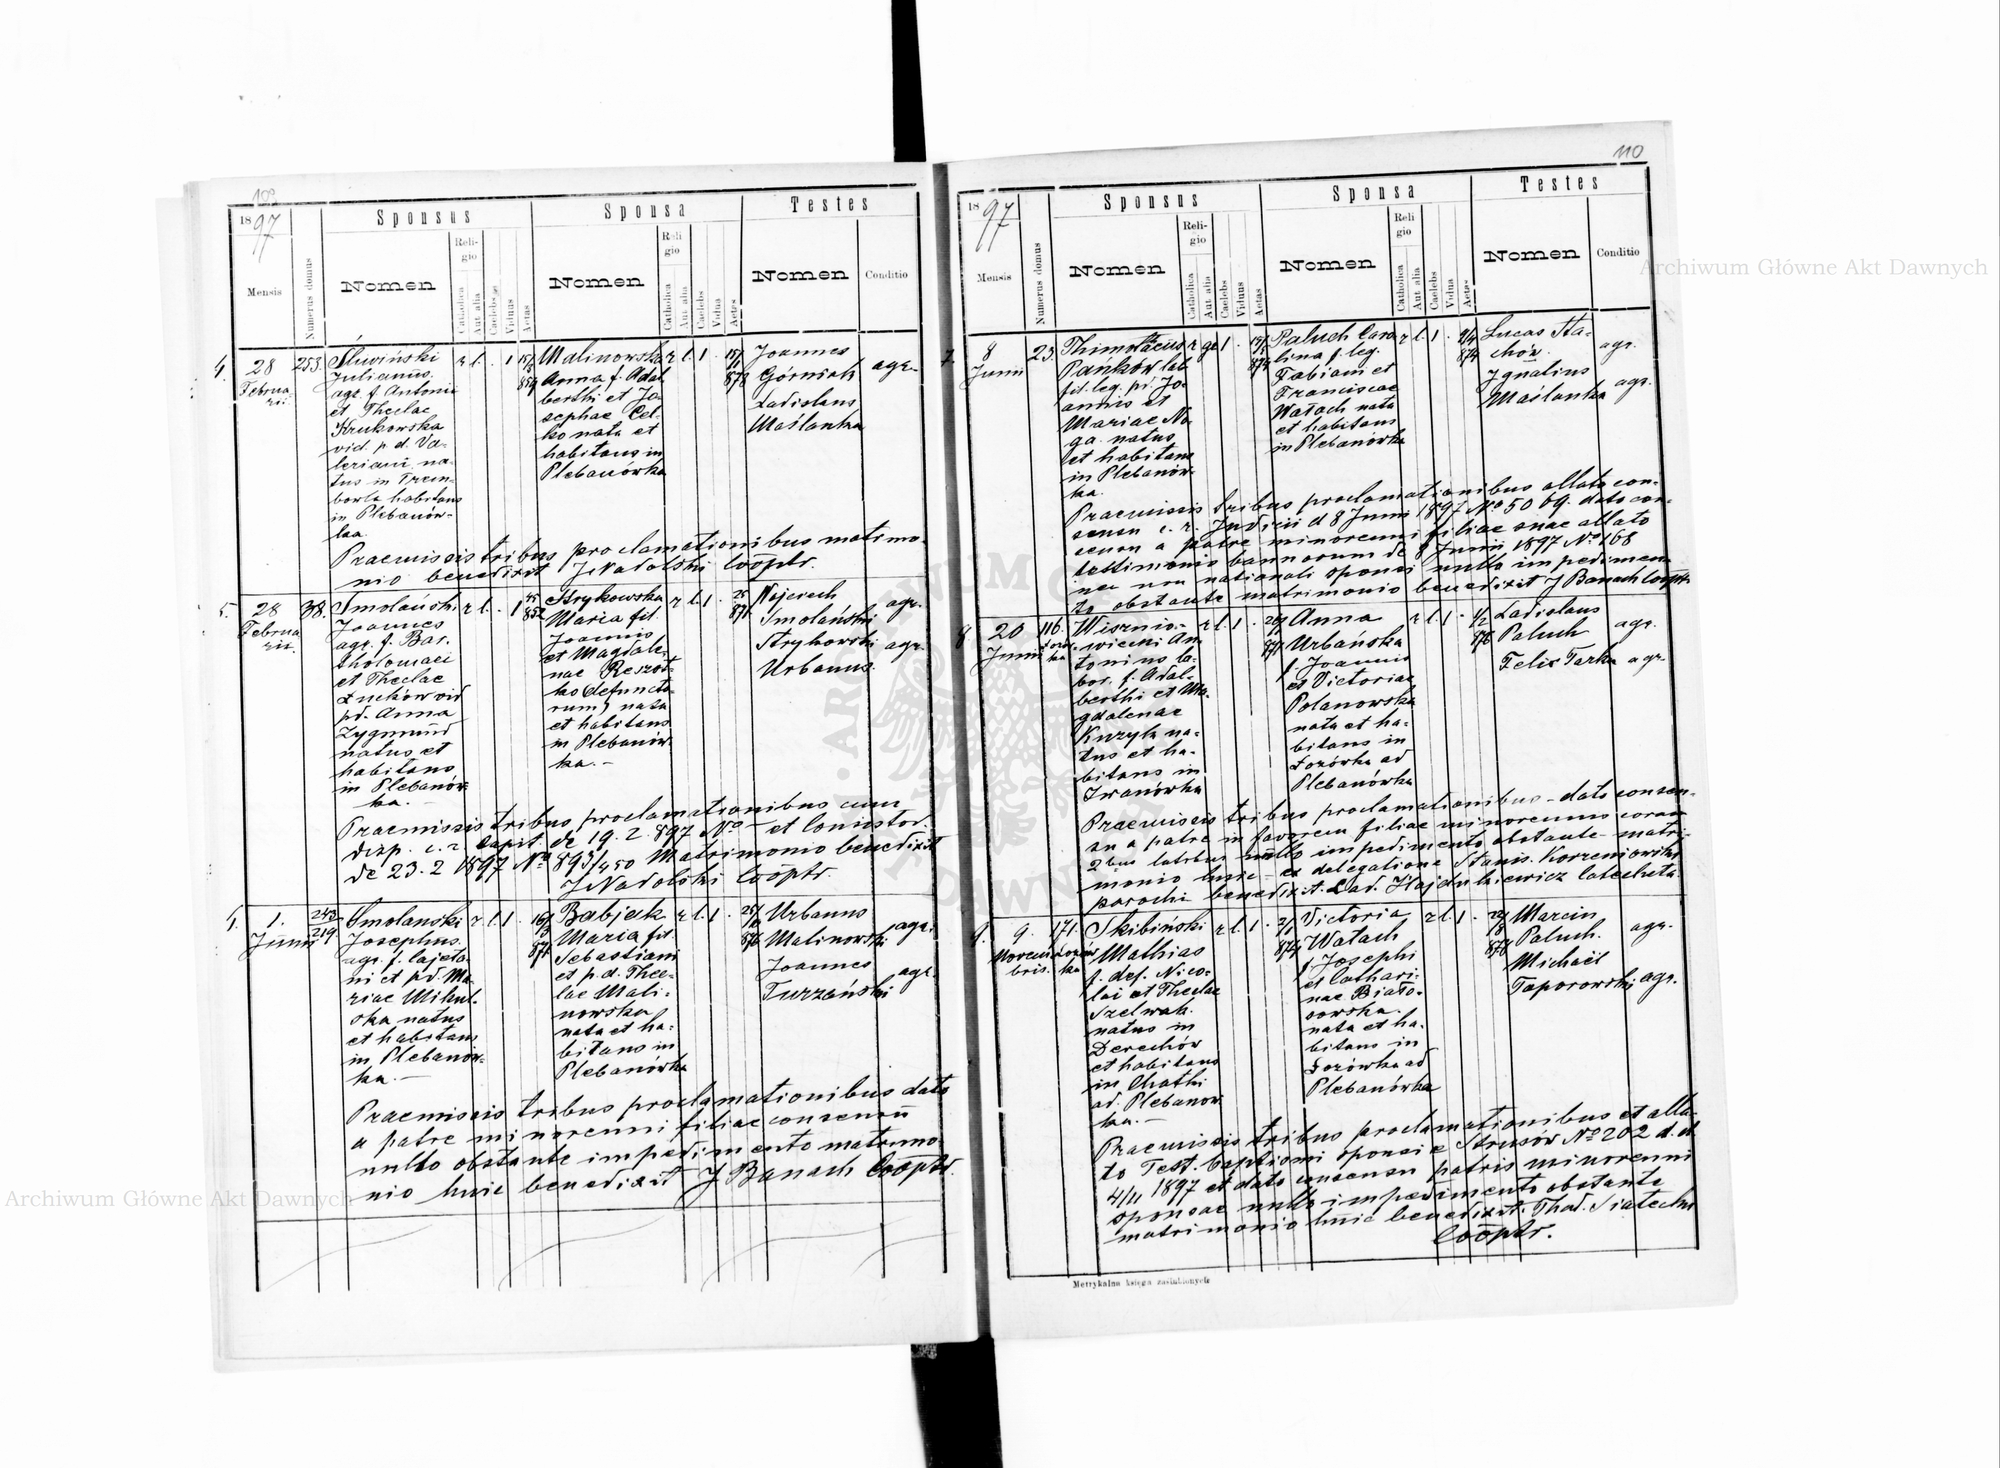 109
1897
Sponsus
Sponsa
Testes
Mensis
Numerus domus
Nomen
Religio
Catholica
Aut alia
Caelebs
Viduus
Aetas
Nomen
Religio
Catholica
Aut alia
Caelebs
Vidua
Aetas
Nomen
Conditio
4.
28
Februa
rii
253.
Śliwiński
Julianus
agr. f. Antonii
et Theclae
Krukowska
vid. p. d. Va-
leriani na-
tus in Trem-
bowla habitans
in Plebanów-
kaa
r. l. . 1
15/5
859
Malinowska
Anna f. Adal
berthi et Jo-
sephae Cel-
ko nata et
habitans in
Plebanówka
r l. 1 .
15/1
878
Joannes
Górniak
Ladislaus
Maślanka
agr.
Praemissis tribus proclamationibus matimo-
nio benedixit J Nadolski Cooptr.
5.
28
Februa
rii.
38.
Smolański
Joannes
agr. f. Bar.
tholomaei
et Theclae
Łucków vid
pd. Anna
Zygmund
natus et
habitans
in Plebanów-
ka. -
r l. . 1
45
852
Strykowska
Maria fil.
Joannis
et Magdale-
nae Reszot-
ko (defuncto-
rum) nata
et habitans
in Plebanów
ka. -
r l. 1 .
25
871
Wojciech
Smolański
Strykowski
Urbanus.
agr.
agr.
Praemissis tribus proclamationibus cum
disp. c. r. Capit. de 19. 2. 897 No - et Consistor.
de 23. 2 1897 No 893/450 Matrimonio benedixit
J Nadolski Cooptr.
1.
Junii
243
219
Smolanski
Josephus
agr. f. Cajeta-
ni et pd. Ma
riae Mikul-
ska natus
et habitans
in Plebanów-
ka. -
r l. 1 .
871
Babjak
Maria fil
Sebastiani
et p. d. Thec-
lae Mali-
nowska
nata et ha-
bitans in
Plebanówka
r l. 1 .
876
Urbanus
Malinowski
Joannes
Turzański
agr.
agr.
Praemissis tribus proclamationibus dato
a patre minorenni filiae consensu
nullo obstante impedimento matrimo-
nio huic benedixit J Banach Cooptr.
110
1897
Sponsus
Sponsa
Testes
Mensis
Numerus domus
Nomen
Religio
Catholica
Aut alia
Caelebs
Viduus
Aetas
Nomen
Religio
Catholica
Aut alia
Caelebs
Vidua
Aetas
Nomen
Conditio
7.
8
Junii
23.
Thimotheus
Pańków lab
fil. leg. pd. Jo-
annis et
Mariae No-
ga natus
et habitans
in Plebanów-
ka.
r gr 1 .
874
Paluch Caro
lina f. leg.
Fabiani et
Franciscae
Watach nata
et habitans
in Plebanówka
r l. 1 .
9/4
874
Lucas Sta-
chów
Ignatius
Maślanka
agr.
agr.
Praemissis tribus proclamationibus allato con-
sensu c. r. Judicii d 8 Junii 1897 No 5069. dato con-
sensu a patre minorenni filiae suae allato
testimonio bannorum de 8 Junii 1897 No 168
nec non nationali sponsi nullo impedimen
to obstante matrimonio benedixit J Banach Cooptr.
8
20
Junii
116.
Łozów
ka
Wisznio-
wiecki An
tonius la-
bor. f. Adal-
berthi et Ma-
gdalenae
Kuzyk na-
tus et ha-
bitans in
Iwanówka
r l. 1 .
871
Anna
Urbańska
f. Joannis
et Victoriae
Polanowska
nata et ha-
bitans in
Łozówka ad
Plebanówka
r l. 1 .
1/2
876
Ladislaus
Paluch
Felix Tarka
agr.
agr.
Praemissis tribus proclamationibus - dato consen-
su a patre in favorem filiae minorennis coram
2bus testibus nullo impedimento obstante matri-
monio huic - ex delegatione Stanis. Korzeniowski
parochi benedixit. Lad. Hajdukiewicz Catecheta.
9.
9.
Novem
bris.
171.
Łozów
ka
Skibiński
Mathias
f. def. Nico-
lai et Theclae
Szelwach
natus in
Derechów
et habitans
in Chatki
ad. Plebanow
ka. -
r l. 1 .
2/1
874
Victoria
Watach
f. Josephi
et Cathari-
nae Biało-
sowska.
nata et ha-
bitans in
Łozówka ad
Plebanówka
r l. 1 .
878
Marcin
Paluch.
Michael
Toporowski
agr.
agr.
Praemissis tribus proclamationibus et alla-
to Test. baptismi sponsi e Strusów No 202 d. d.
4/11 1897 et dato consensu patris minorenni
sponsae nullo impedimento obstante
matrimonio huic benedixit. Thad. Siatecki
Cooptr.
Metrykalna księga zaślubionych
Archiwum Główne Akt Dawnych
Archiwum Główne Akt Dawnych